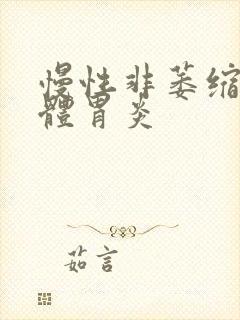 慢性非萎缩
體胃炎
茹言